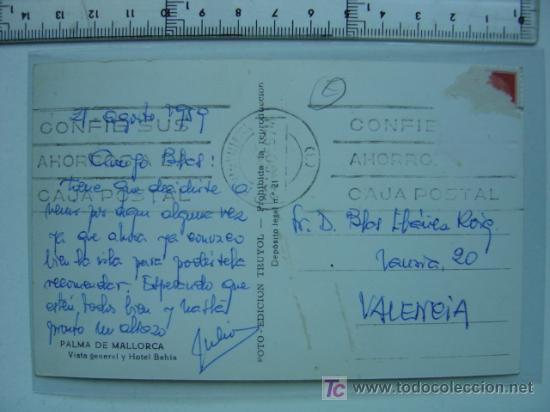 21-agosto 1959
CONFIE SUS
AHORROS
CAJA POSTAL
Amigo Blas:
Tiene que decidirse a
venir por aqui alguna vez
ya que ahora ya conozco
bien la isla para podersela
recomendar. Esperando que
estén todos bien y hasta
pronto un abrazo
Julio
PALMA DE MALLORCA
Vista general y Hotel Bahía
FOTO-EDICION TRUYOL — Prohibida la reproducción
Depósito legal n.º 21
CONFIE
AHORRO
CAJA POSTAL
Sr. D. Blas Ibáñez Roig
20
VALENCIA
todocoleccion
www.todocoleccion.net